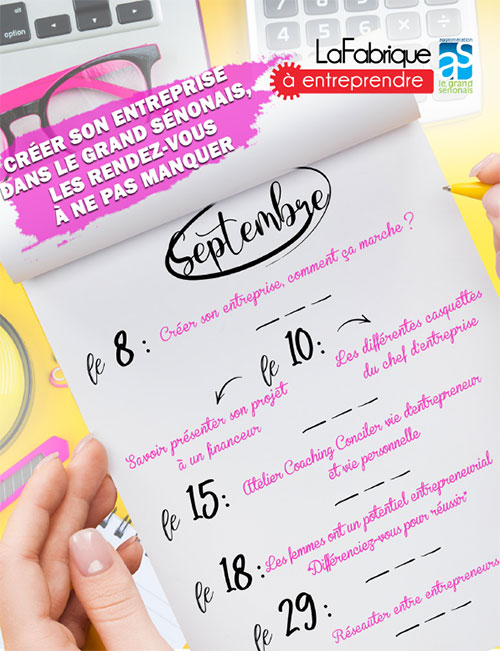 LaFabrique
à entreprendre
agglomération
le grand
sénonais
CRÉER SON ENTREPRISE
DANS LE GRAND SÉNONAIS,
LES RENDEZ-VOUS
À NE PAS MANQUER
Septembre
le 8 : Créer son entreprise, comment ça marche ?
le 10 :
Les différentes casquettes
du chef d'entreprise
Savoir présenter son projet
à un financeur
le 15 : Atelier Coaching Concilier vie d'entrepreneur
et vie personnelle
le 18 : Les femmes ont un potentiel entrepreneurial
"Différenciez-vous pour réussir"
le 29 : Réseauter entre entrepreneurs